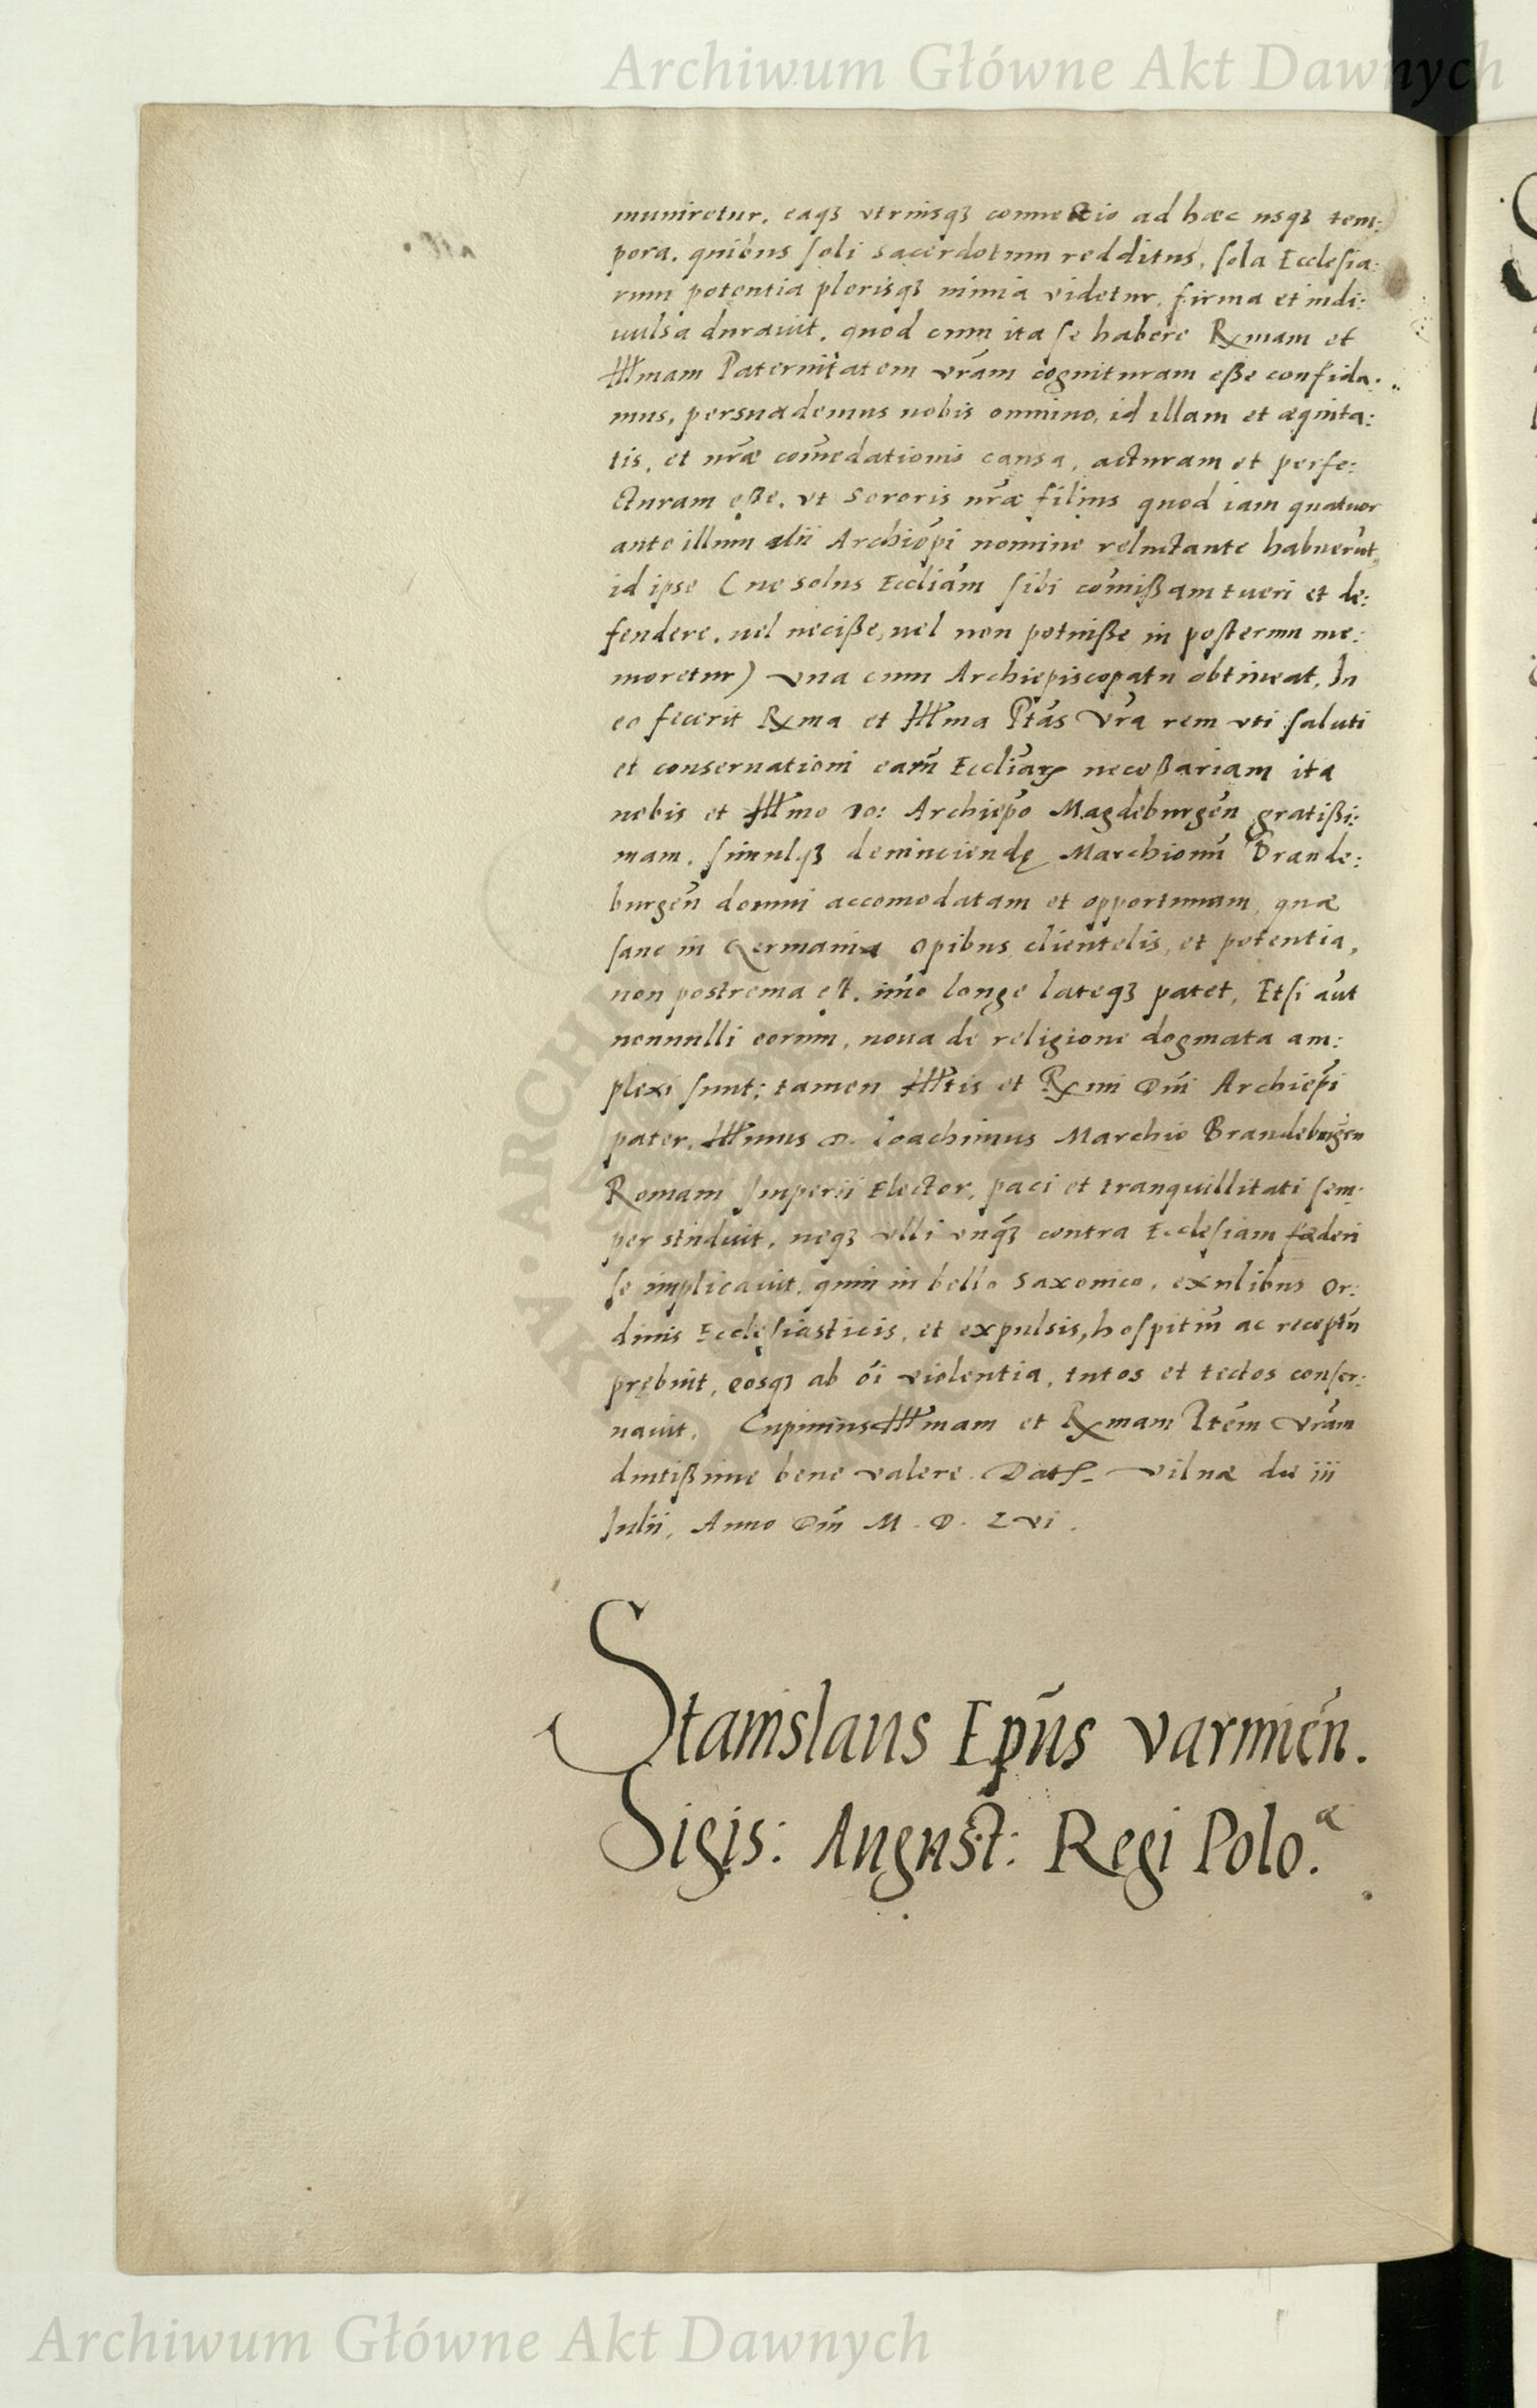 Archiwum Główne Akt Dawnych
muniretur, eaqꝫ vtriusqꝫ connectio ad hæc usqꝫ tem:
pora, quibus soli sacerdotum redditus, sola Ecclesia:
rum potentia plerisqꝫ nimia videtur, firma et indi:
uulsa durauit. quod cum ita se habere Rx̄mam et
Illmam Paternitatem vr̄am cognituram eße confida:
mus, persuademus nobis omnino, id illam et æquita:
tis, et nr̄æ com̄edationis causa, acturam et perfe:
cturam eße, vt sororis nr̄æ filius quod iam quatuor
ante illum alii Archiep̄i nomine reluctante habuerūt,
id ipse (ne solus Eccliām sibi com̄ißam tueri et de:
fendere, uel neciße, uel non potuiße in posterum me:
moretur) vna cum Archiepiscopatu obtineat. In
eo fecerit Rx̄ma et Illma Pt̄as vr̄a rem vti saluti
et conseruationi earū Eccliaꝝ neceßariam ita
nobis et Illmo D: Archiep̄o Magdeburgeñ gratißi:
mam, simulqꝫ deuinciendę Marchionū Brande:
burgeñ domui accomodatam et opportunam, quæ
sane in Germania opibus, clientelis, et potentia,
non postrema est, im̄o longe lateqꝫ patet. Etsi aūt
nonnulli eorum, noua de religione dogmata am:
plexi sunt; tamen Illtis et Rx̄mi Dñi Archiep̄i
pater, Illmus D. Ioachimus Marchio Brandeburgeñ
Romani Imperii Elector, paci et tranquillitati sem:
per studuit, neqꝫ vlli vnq̄ꝫ contra Ecclesiam fœderi
se implicauit, quin in bello Saxonico, exulibus or:
dinis Ecclesiasticis, et expulsis, hospitiū ac receptū
prębuit, eosqꝫ ab ōi violentia, tutos et tectos conser:
uauit. Cupimus Illmam et Rx̄mam Ptēm vr̄am
diutißime bene valere. Dat. Vilnæ die iii
Iulii, Anno Dñi M. D. Lvi.
Stanislaus Ep̄us Varmieñ.
Sigis: August: Regi Polo.æ
ARCHIWUM GŁÓWNE · AKT DAWNYCH ·
Archiwum Główne Akt Dawnych